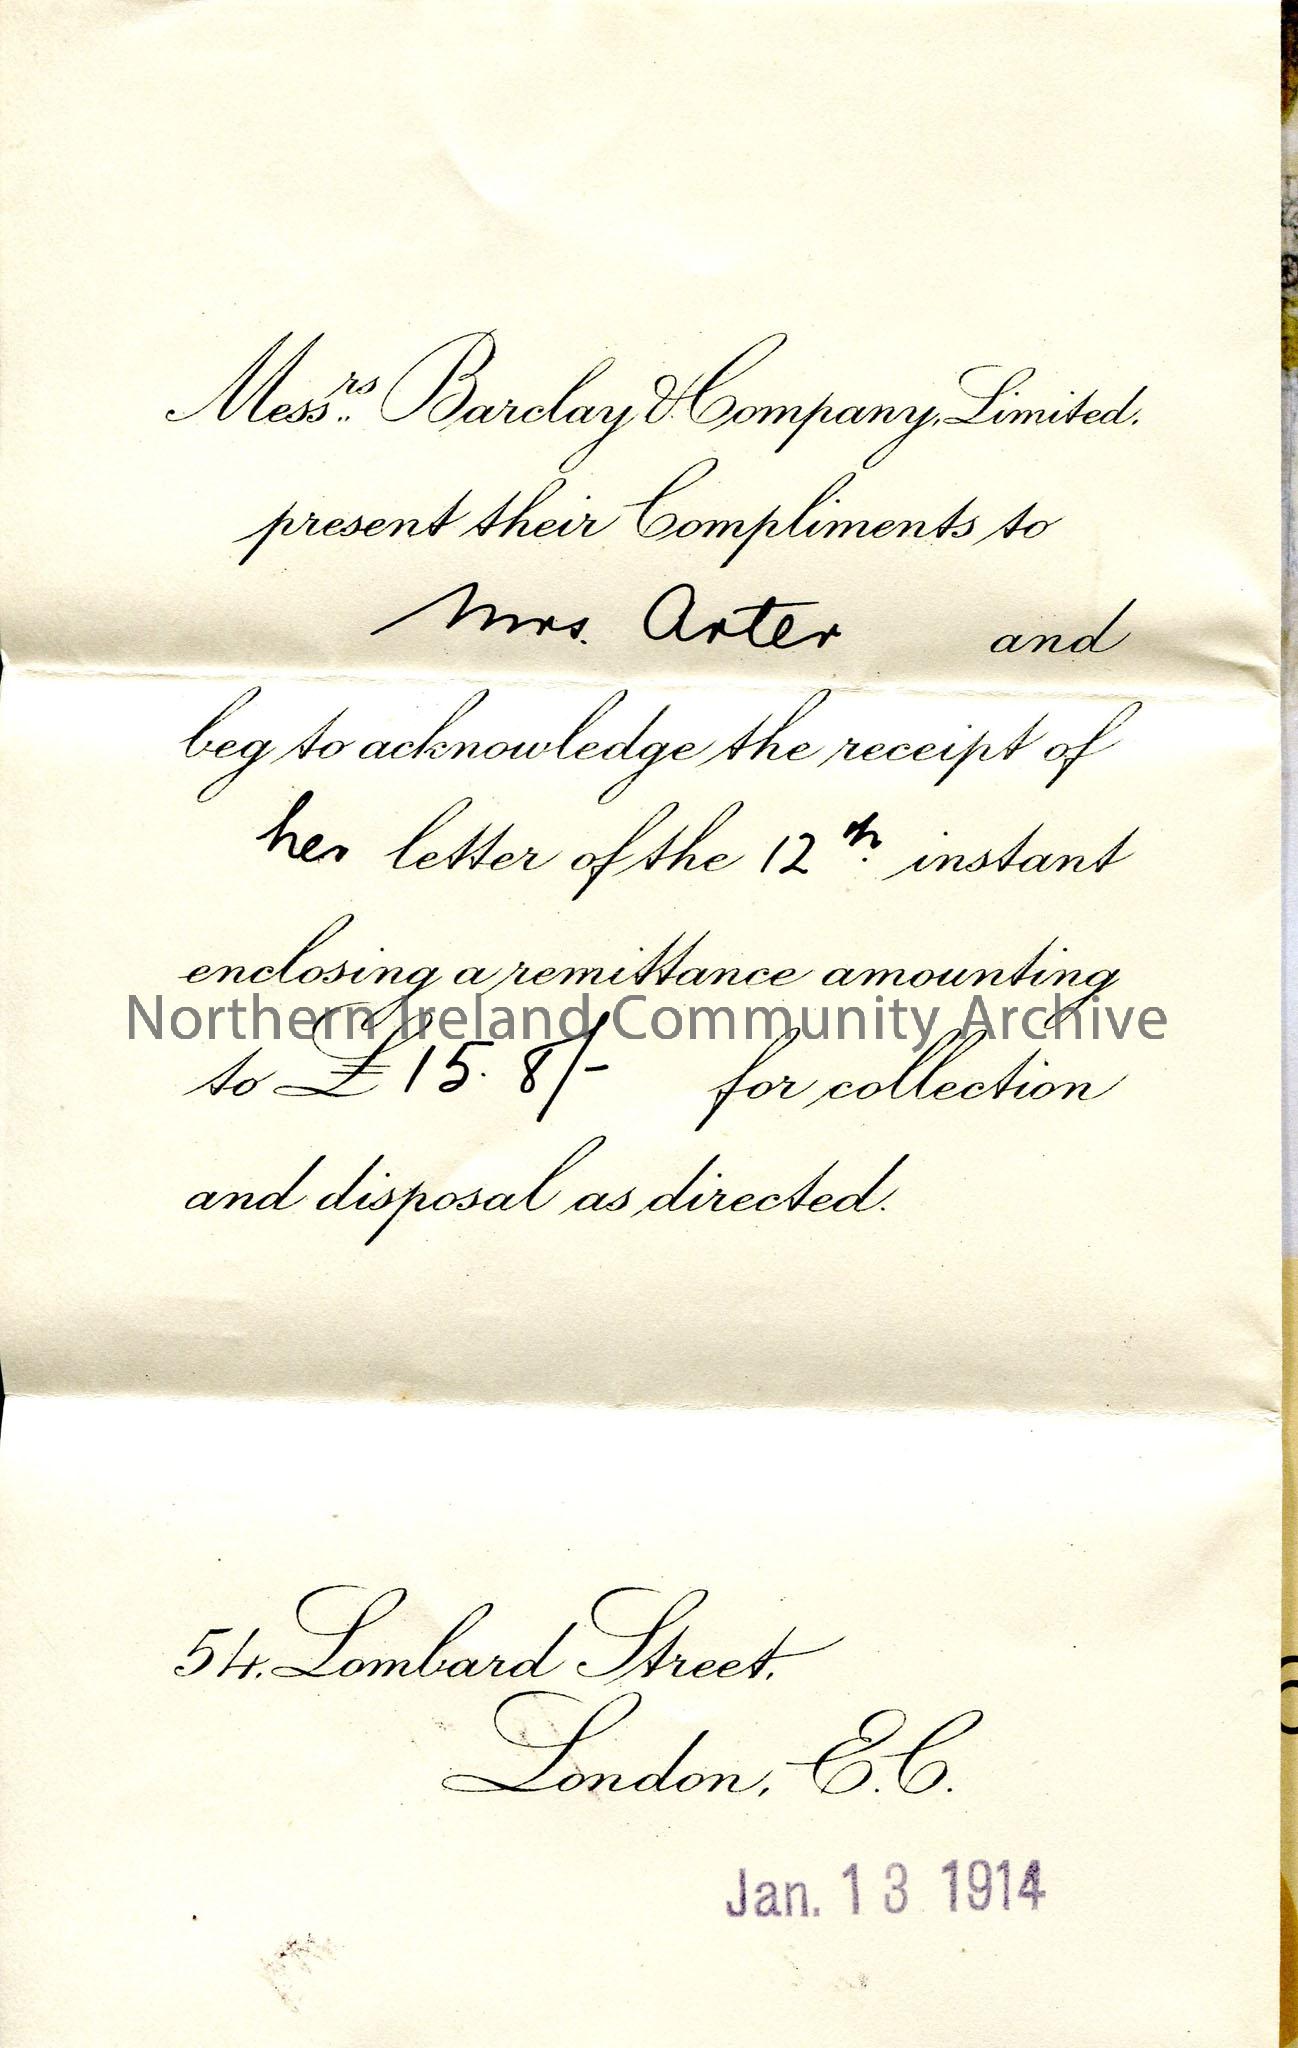 Messrs. Barclay & Company, Limited.
present their Compliments to
Mrs. Arter and
beg to acknowledge the receipt of
her letter of the 12th. instant
enclosing a remittance amounting
Northern Ireland Community Archive
to £15.8/- for collection
and disposal as directed.
54, Lombard Street,
London, E.C.
Jan. 13 1914